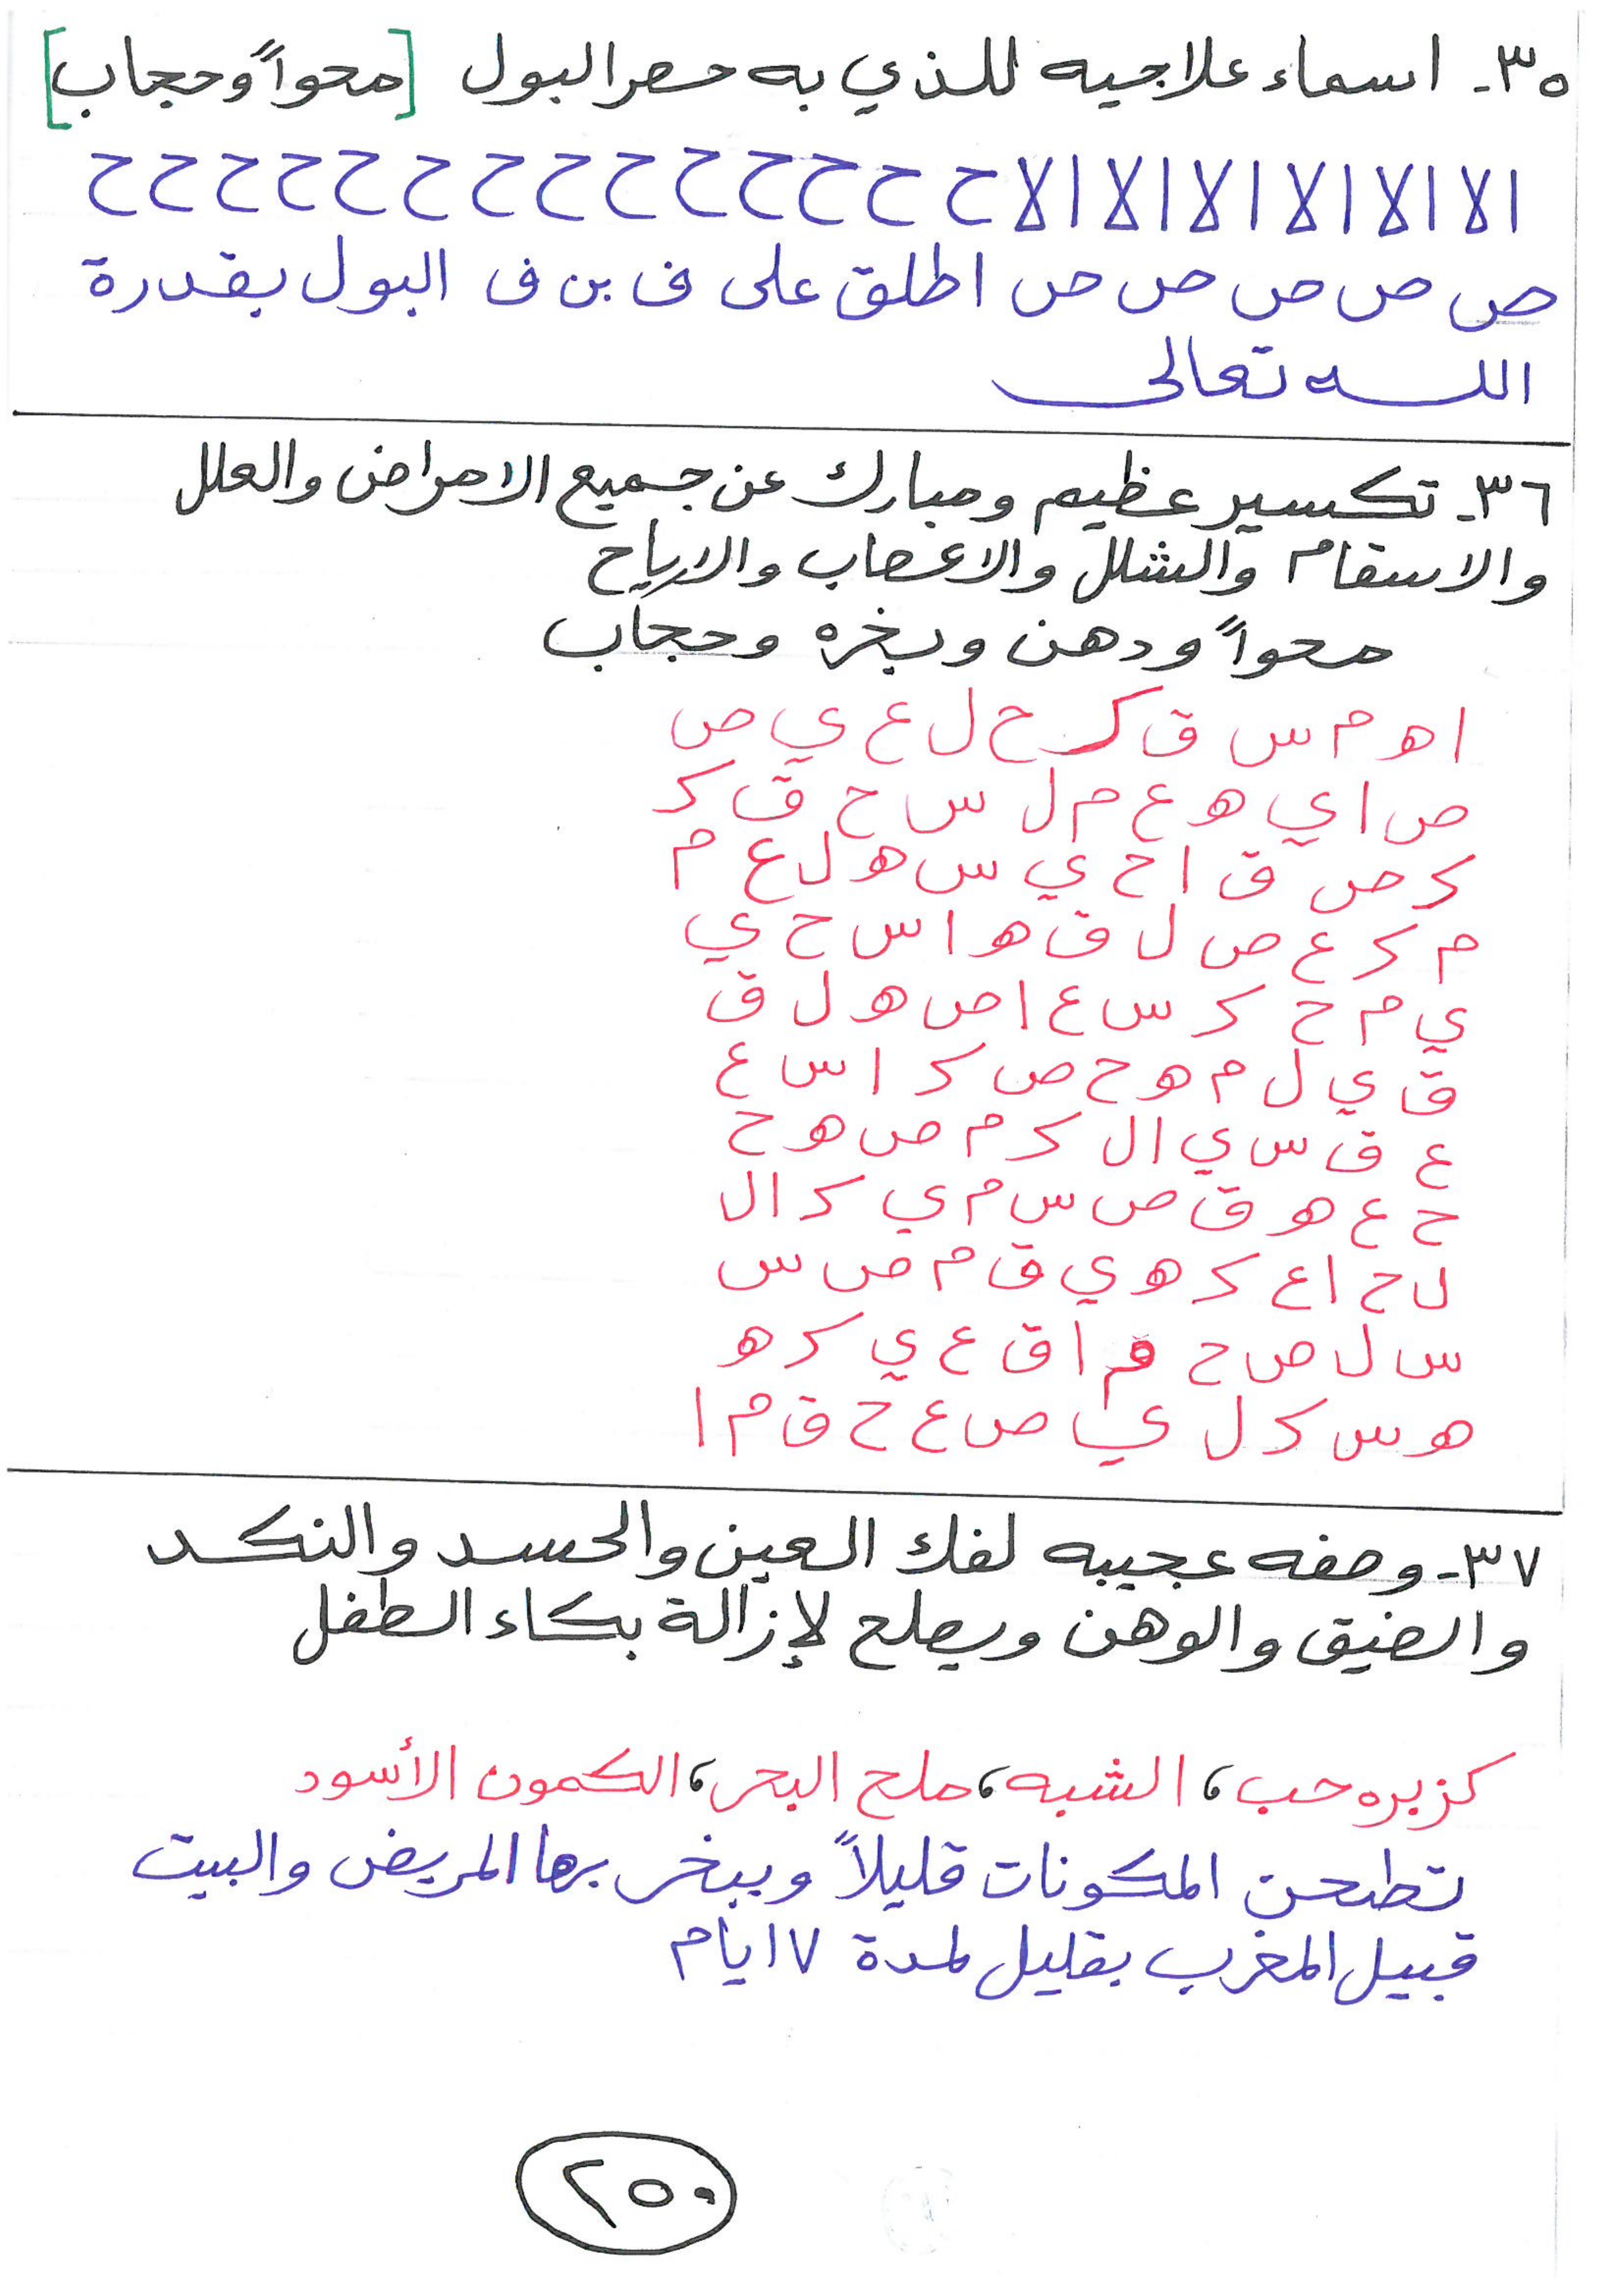 ٣٥- اسماء علاجيه للذي به حصر البول [محواً وحجاب]
الا الا الا الا الا الا ح ح ح ح ح ح ح ح ح ح ح ح ح ح
ص ص ص ص ص ص اطلق على ف بن ف البول بقدرة
الله تعالى
٣٦- تكسير عظيم ومبارك عن جميع الامراض والعلل
والاسقام والشلل والاعصاب والارياح
محواً ودهن وبخره وحجاب
ا ه م س ق ك ح ل ع ي ص
ص ا ي ه ع م ل س ح ق ك
ك ص ق ا ح ي س ه ل ع م
م ك ع ص ل ق ه ا س ح ي
ي م ح ك س ع ا ص ه ل ق
ق ي ل م ه ح ص ك ا س ع
ع ق س ي ا ل ك م ص ه ح
ح ع ه ق ص س م ي ك ا ل
ل ح ا ع ك ه ي ق م ص س
س ل ص ح م ا ق ع ي ك ه
ه س ك ل ي ص ع ح ق م ا
٣٧- وصفه عجيبه لفك العين والحسد والنكد
والضيق والوهن ويصلح لإزالة بكاء الطفل
كزبره حب، الشبه، ملح البحر، الكمون الأسود
تطحن المكونات قليلاً ويبخر بها المريض والبيت
قبيل المغرب بقليل لمدة ٧ ايام
٢٥٠